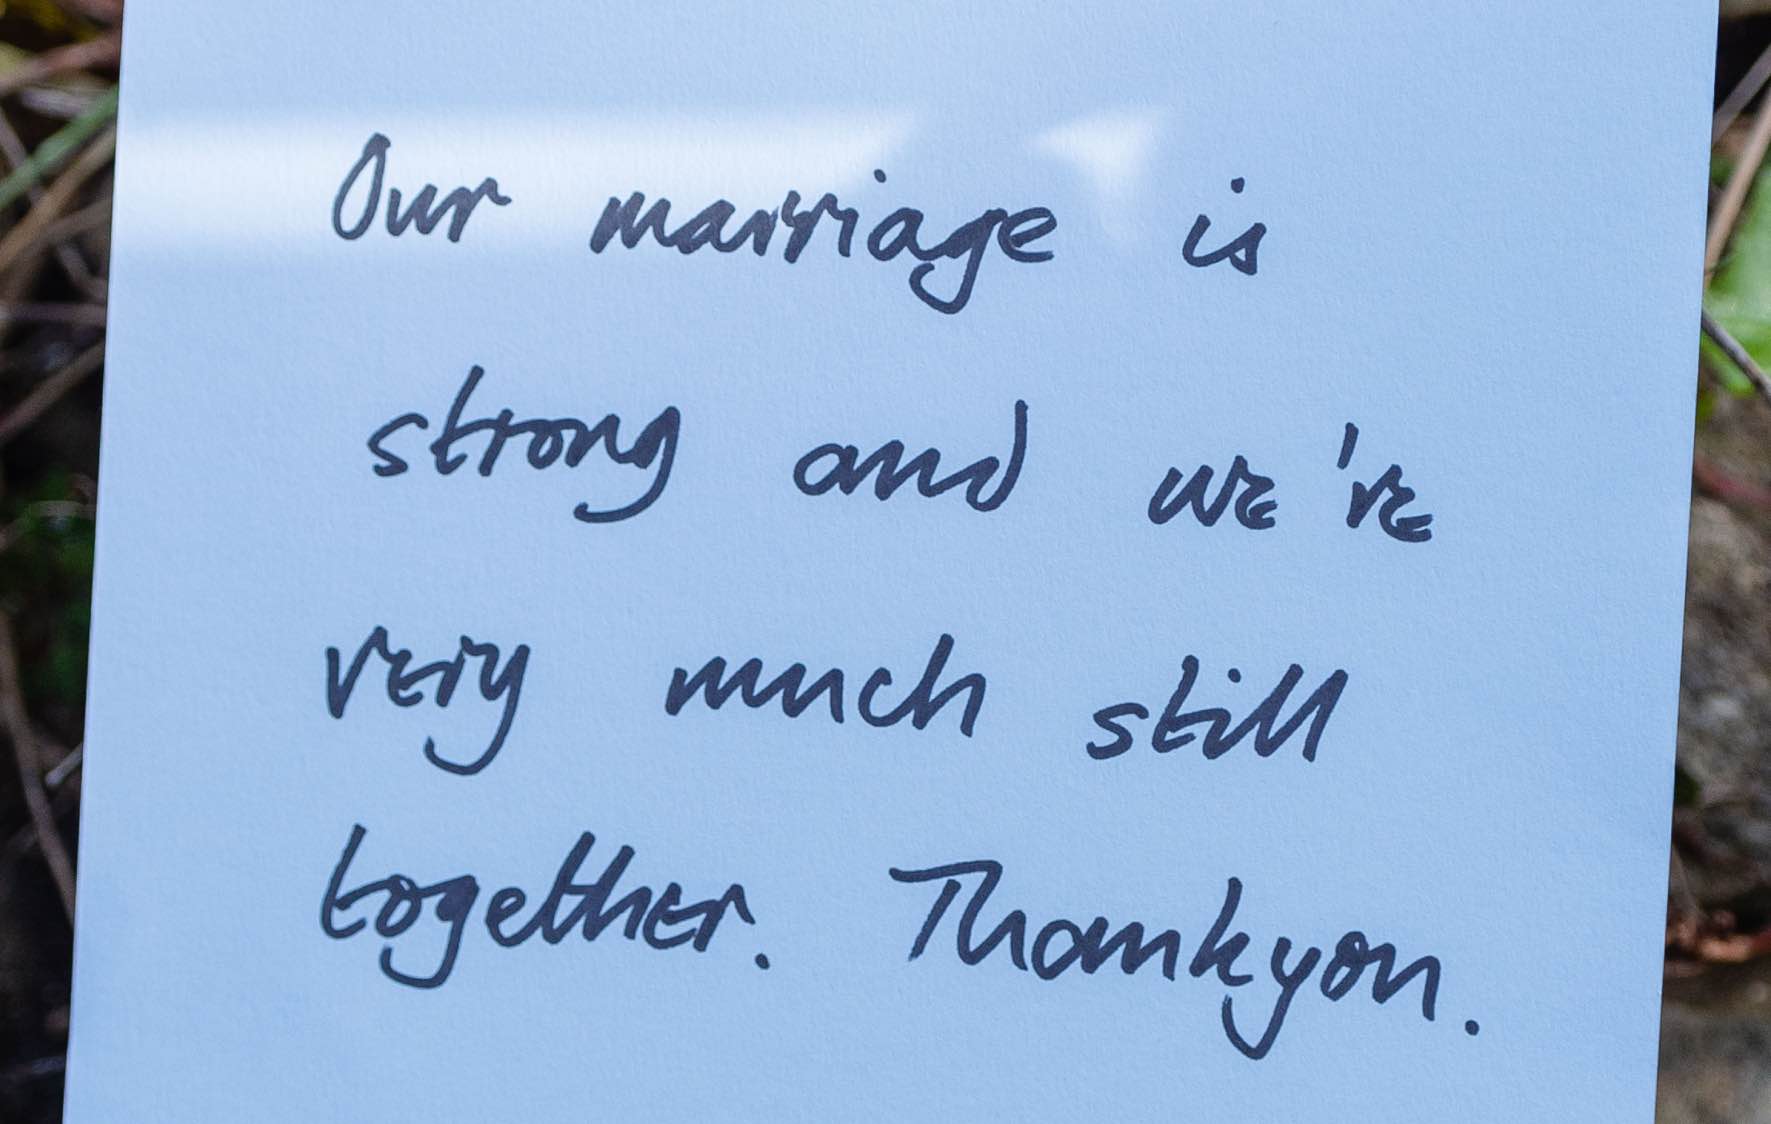 Our marriage is
strong and we've
very much still
together. Thankyou.